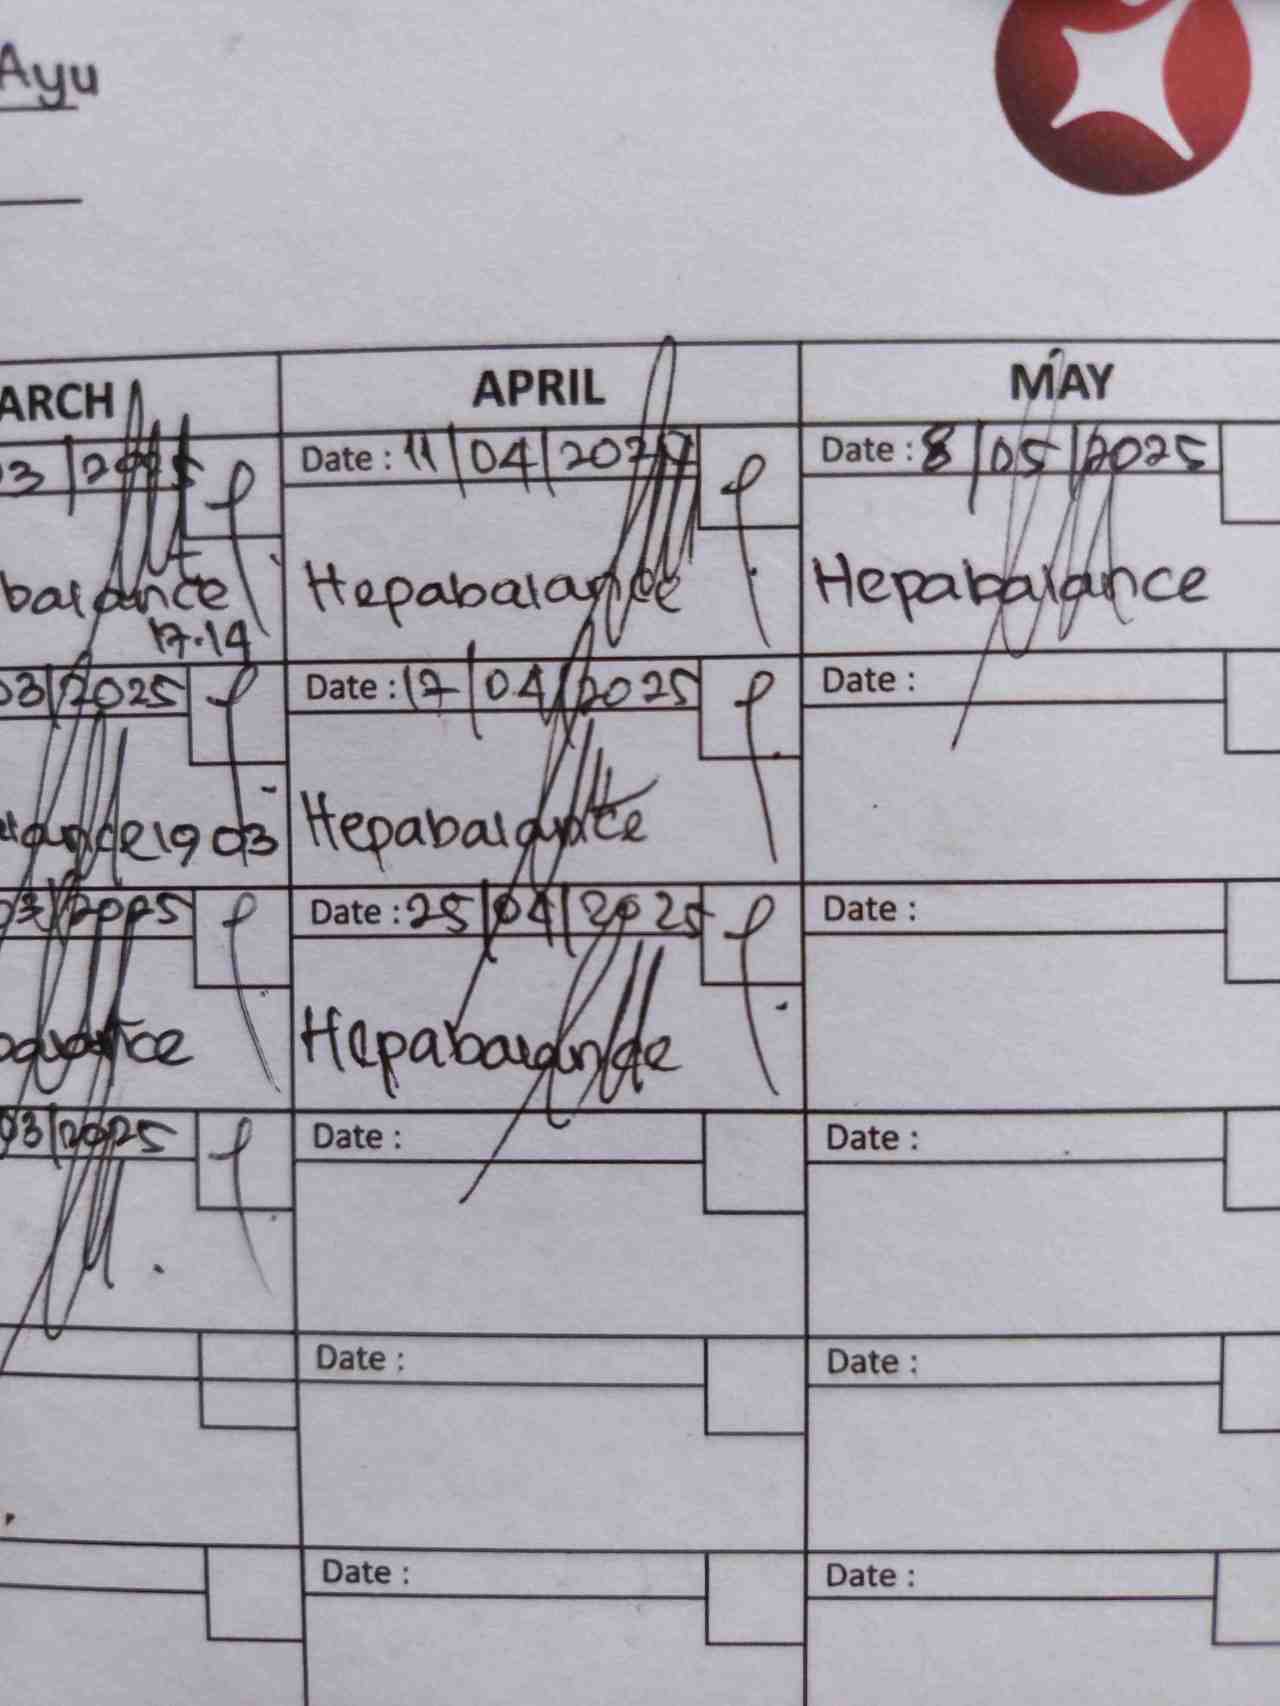 Ayu
ARCH APRIL MAY
03/2025 Date : 11/04/202 Date : 8/05/2025
balance Hepabalance Hepabalance
17.14
03/2025 Date : 17/04/2025 Date :
lance 19 03 Hepabalance
03/2025 Date : 25/04/2025 Date :
balance Hepabalance
03/2025 Date : Date :
Date : Date :
Date : Date :